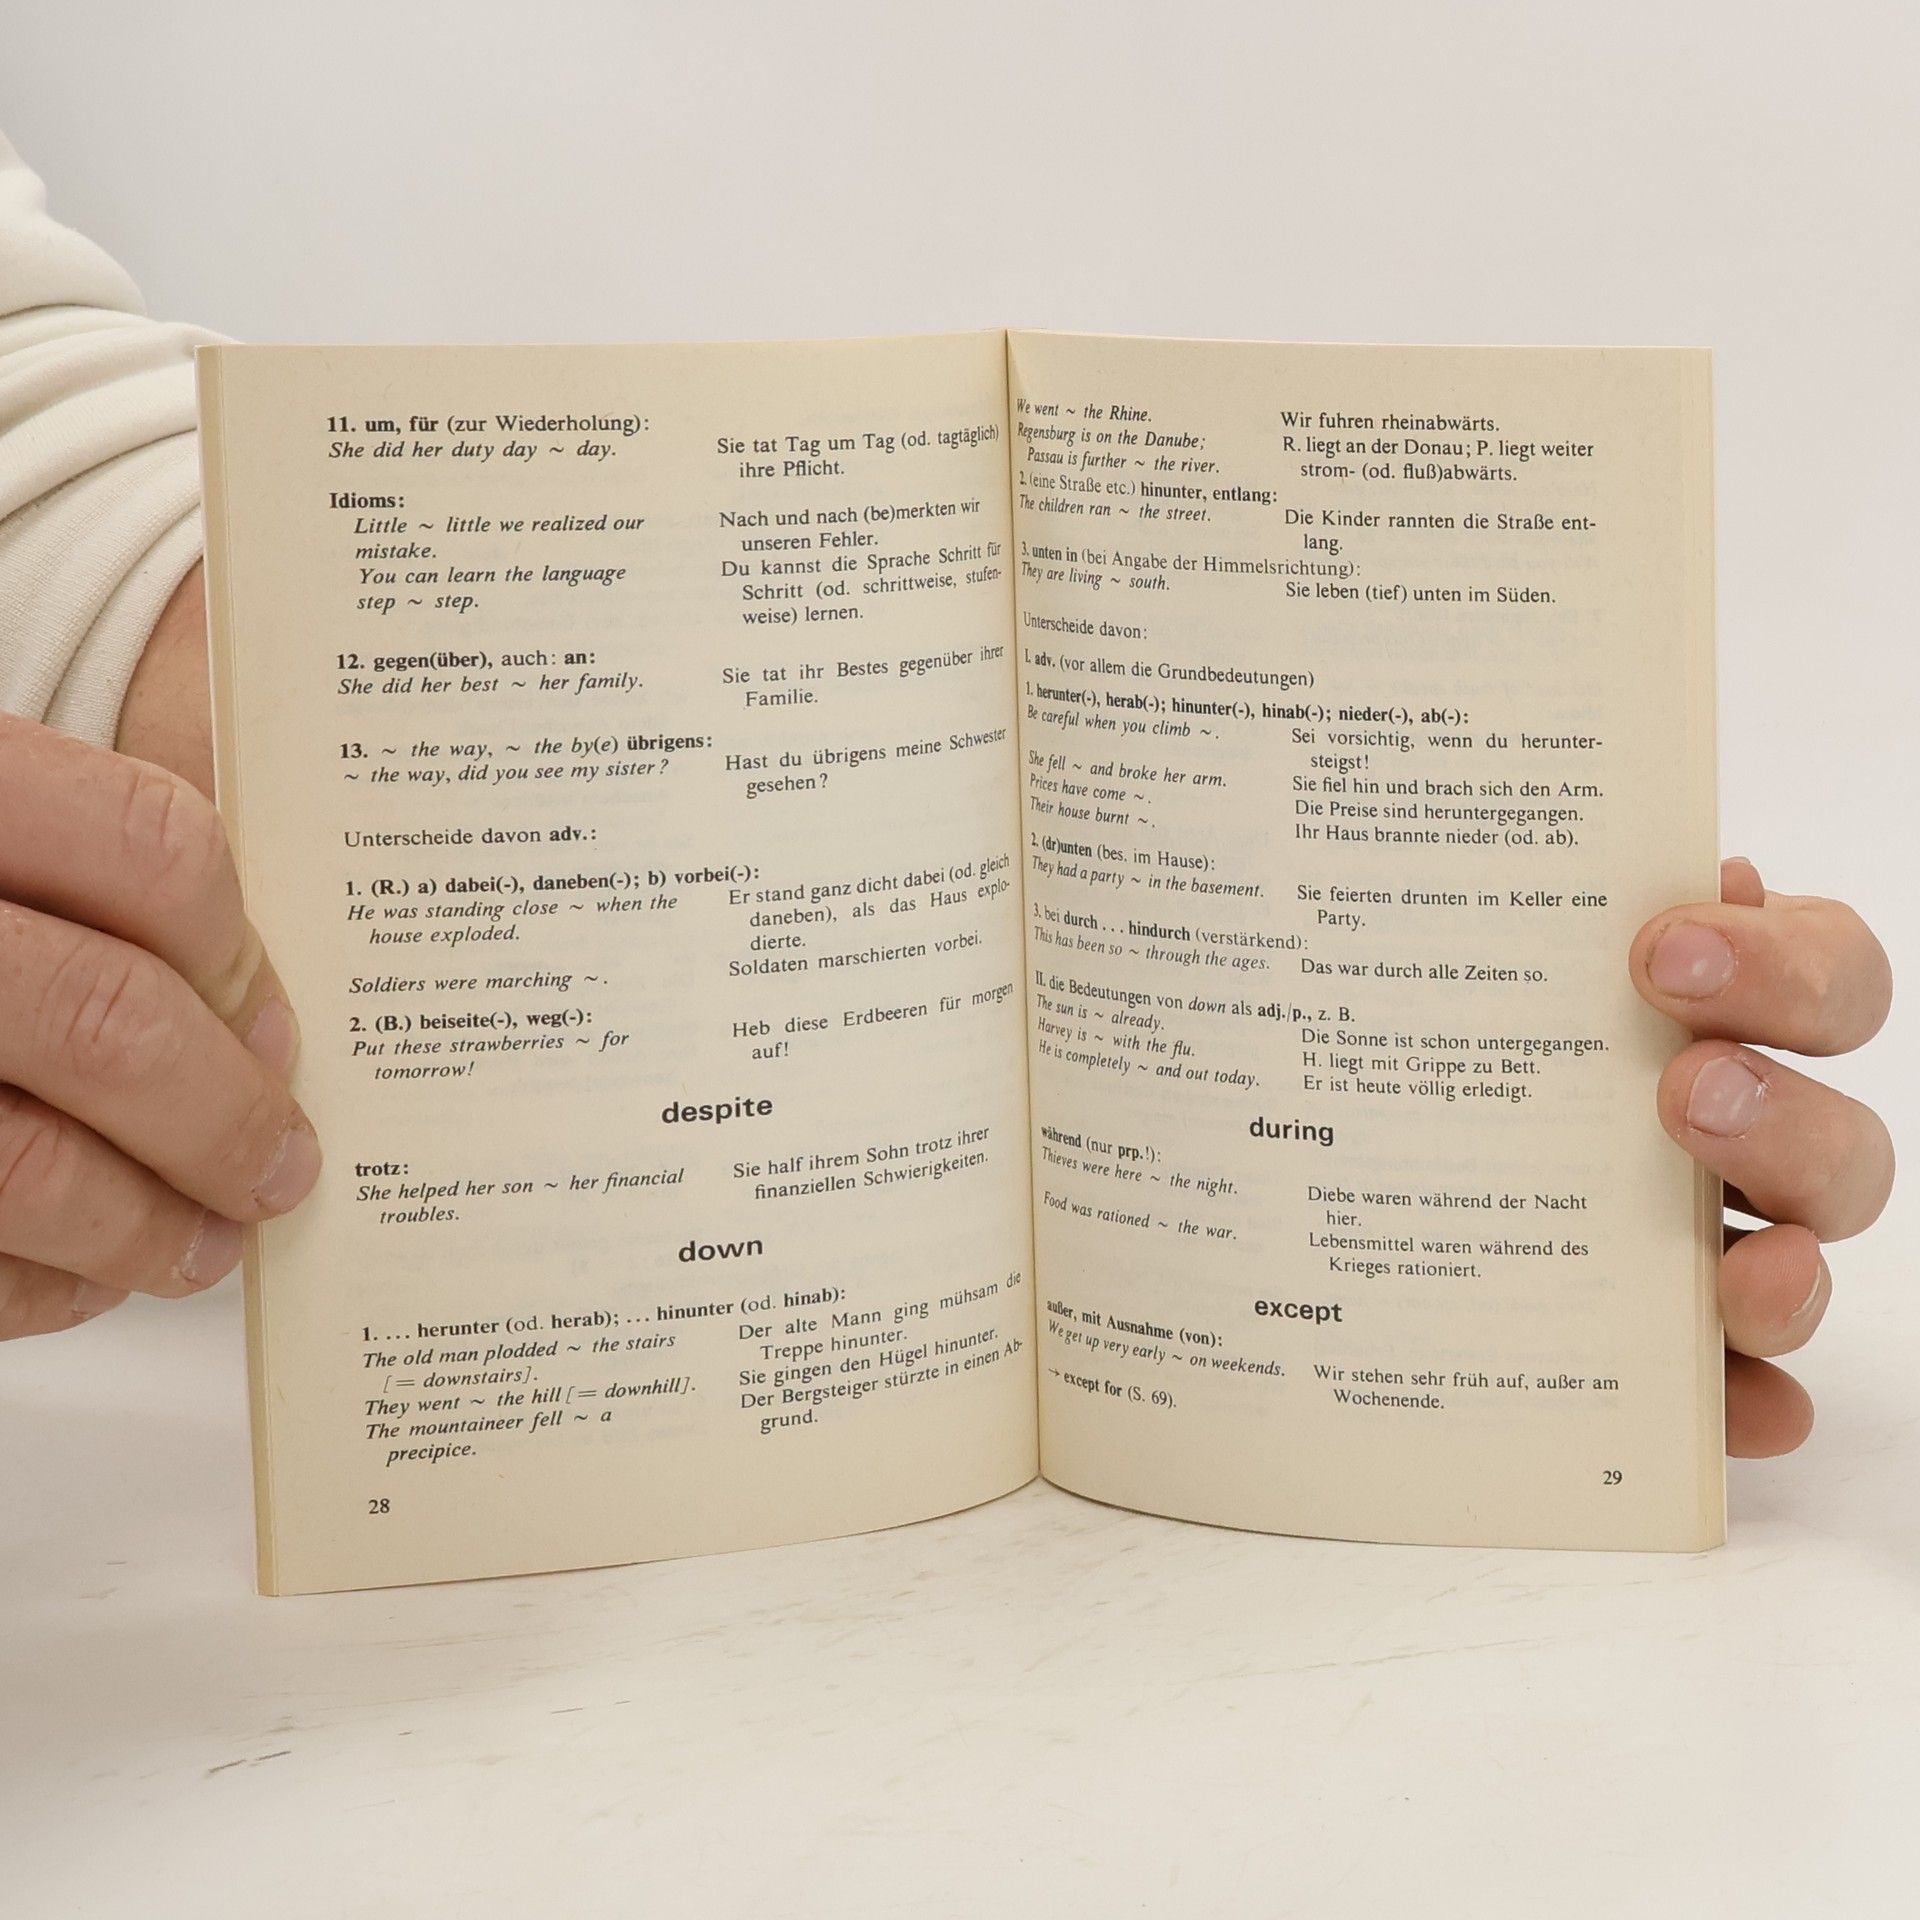 11. um, für (zur Wiederholung):
She did her duty day ~ day.
Sie tat Tag um Tag (od. tagtäglich)
ihre Pflicht.
Idioms:
Little ~ little we realized our
mistake.
Nach und nach (be)merkten wir
unseren Fehler.
You can learn the language
step ~ step.
Du kannst die Sprache Schritt für
Schritt (od. schrittweise, stufen-
weise) lernen.
12. gegen(über), auch: an:
She did her best ~ her family.
Sie tat ihr Bestes gegenüber ihrer
Familie.
13. ~ the way, ~ the by(e) übrigens:
~ the way, did you see my sister?
Hast du übrigens meine Schwester
gesehen?
Unterscheide davon adv.:
1. (R.) a) dabei(-), daneben(-); b) vorbei(-):
He was standing close ~ when the
house exploded.
Er stand ganz dicht dabei (od. gleich
daneben), als das Haus explo-
dierte.
Soldiers were marching ~.
Soldaten marschierten vorbei.
2. (B.) beiseite(-), weg(-):
Put these strawberries ~ for
tomorrow!
Heb diese Erdbeeren für morgen
auf!
despite
trotz:
She helped her son ~ her financial
troubles.
Sie half ihrem Sohn trotz ihrer
finanziellen Schwierigkeiten.
down
1. ... herunter (od. herab); ... hinunter (od. hinab):
The old man plodded ~ the stairs
[= downstairs].
Der alte Mann ging mühsam die
Treppe hinunter.
They went ~ the hill [= downhill].
Sie gingen den Hügel hinunter.
The mountaineer fell ~ a
precipice.
Der Bergsteiger stürzte in einen Ab-
grund.
28
We went ~ the Rhine.
Wir fuhren rheinabwärts.
Regensburg is on the Danube;
Passau is further ~ the river.
R. liegt an der Donau; P. liegt weiter
strom- (od. fluß)abwärts.
2. (eine Straße etc.) hinunter, entlang:
The children ran ~ the street.
Die Kinder rannten die Straße ent-
lang.
3. unten in (bei Angabe der Himmelsrichtung):
They are living ~ south.
Sie leben (tief) unten im Süden.
Unterscheide davon:
I. adv. (vor allem die Grundbedeutungen)
1. herunter(-), herab(-); hinunter(-), hinab(-); nieder(-), ab(-):
Be careful when you climb ~.
Sei vorsichtig, wenn du herunter-
steigst!
She fell ~ and broke her arm.
Sie fiel hin und brach sich den Arm.
Prices have come ~.
Die Preise sind heruntergegangen.
Their house burnt ~.
Ihr Haus brannte nieder (od. ab).
2. (dr)unten (bes. im Hause):
They had a party ~ in the basement.
Sie feierten drunten im Keller eine
Party.
3. bei durch ... hindurch (verstärkend):
This has been so ~ through the ages.
Das war durch alle Zeiten so.
II. die Bedeutungen von down als adj./p., z. B.
The sun is ~ already.
Die Sonne ist schon untergegangen.
Harvey is ~ with the flu.
H. liegt mit Grippe zu Bett.
He is completely ~ and out today.
Er ist heute völlig erledigt.
during
während (nur prp.!):
Thieves were here ~ the night.
Diebe waren während der Nacht
hier.
Food was rationed ~ the war.
Lebensmittel waren während des
Krieges rationiert.
except
außer, mit Ausnahme (von):
We get up very early ~ on weekends.
Wir stehen sehr früh auf, außer am
Wochenende.
→ except for (S. 69).
29